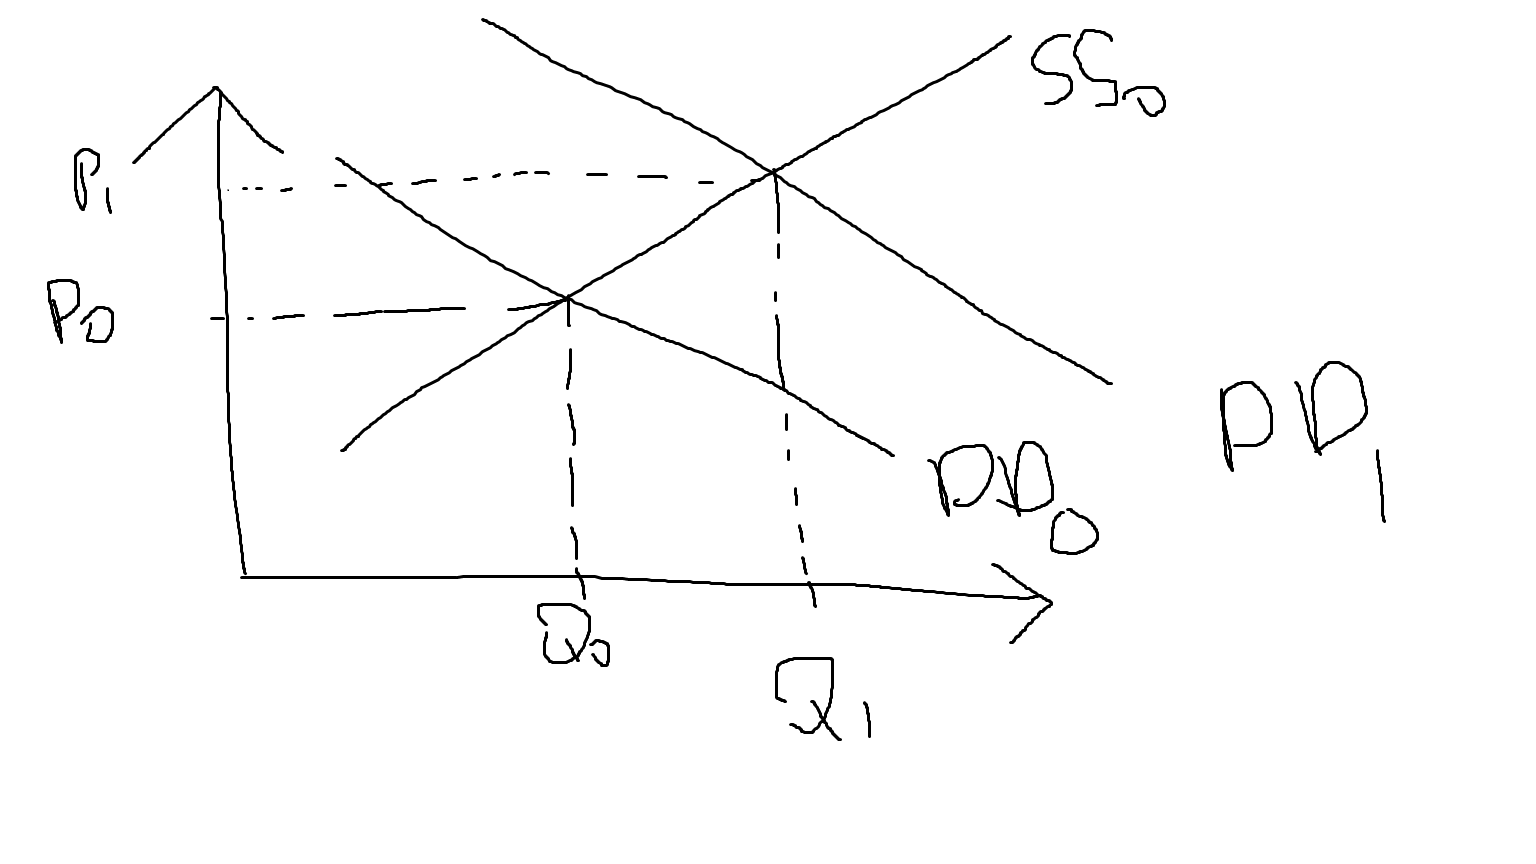 SS0
P1
P0
DD1
DD0
Q0
Q1